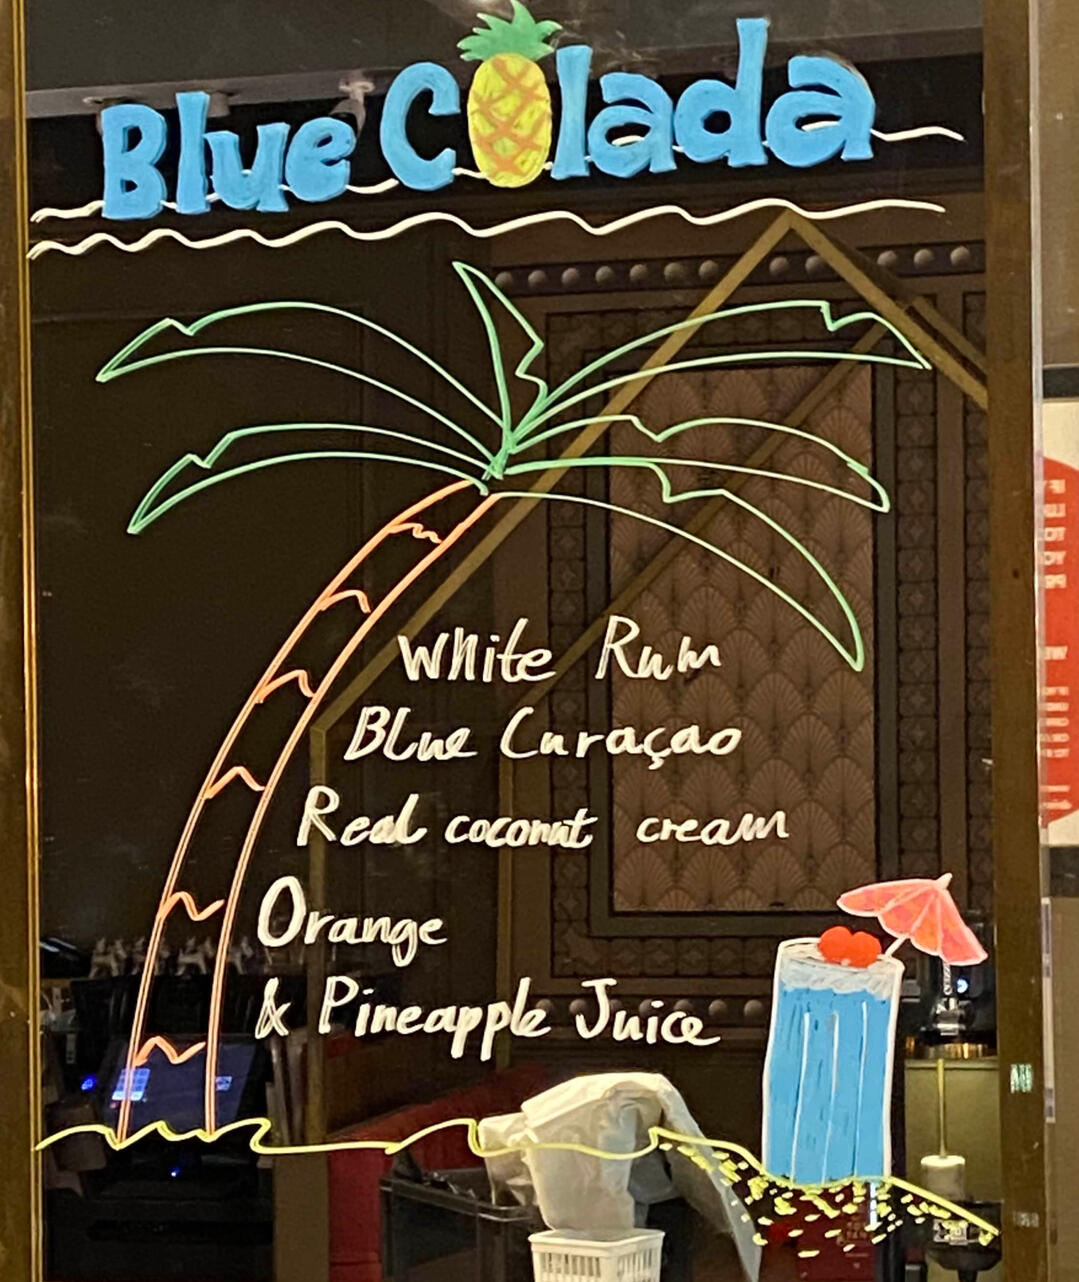 Blue Colada
White Rum
Blue Curaçao
Real coconut cream
Orange
& Pineapple Juice